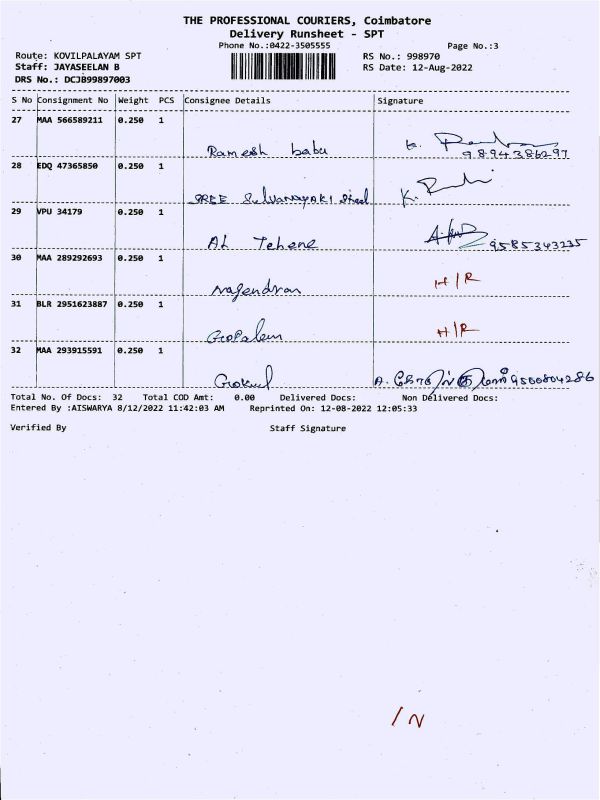 THE PROFESSIONAL COURIERS, Coimbatore
Delivery Runsheet - SPT
Phone No.:0422-3505555 Page No.:3
Route: KOVILPALAYAM SPT RS No.: 998970
Staff: JAYASEELAN B RS Date: 12-Aug-2022
DRS No.: DCJB99897003
S No Consignment No Weight PCS Consignee Details Signature
27 MAA 566589211 0.250 1
Ramesh babu K.
9894386297
28 EDQ 47365850 0.250 1
SREE Selvanayaki steel K.
29 VPU 34179 0.250 1
AL Tehene 9585343235
30 MAA 289292693 0.250 1
Nagendran H/R
31 BLR 2951623887 0.250 1
Gopalan H/R
32 MAA 293915591 0.250 1
Gokul 9500804286
Total No. Of Docs: 32 Total COD Amt: 0.00 Delivered Docs: Non Delivered Docs:
Entered By :AISWARYA 8/12/2022 11:42:03 AM Reprinted On: 12-08-2022 12:05:33
Verified By Staff Signature
/ N